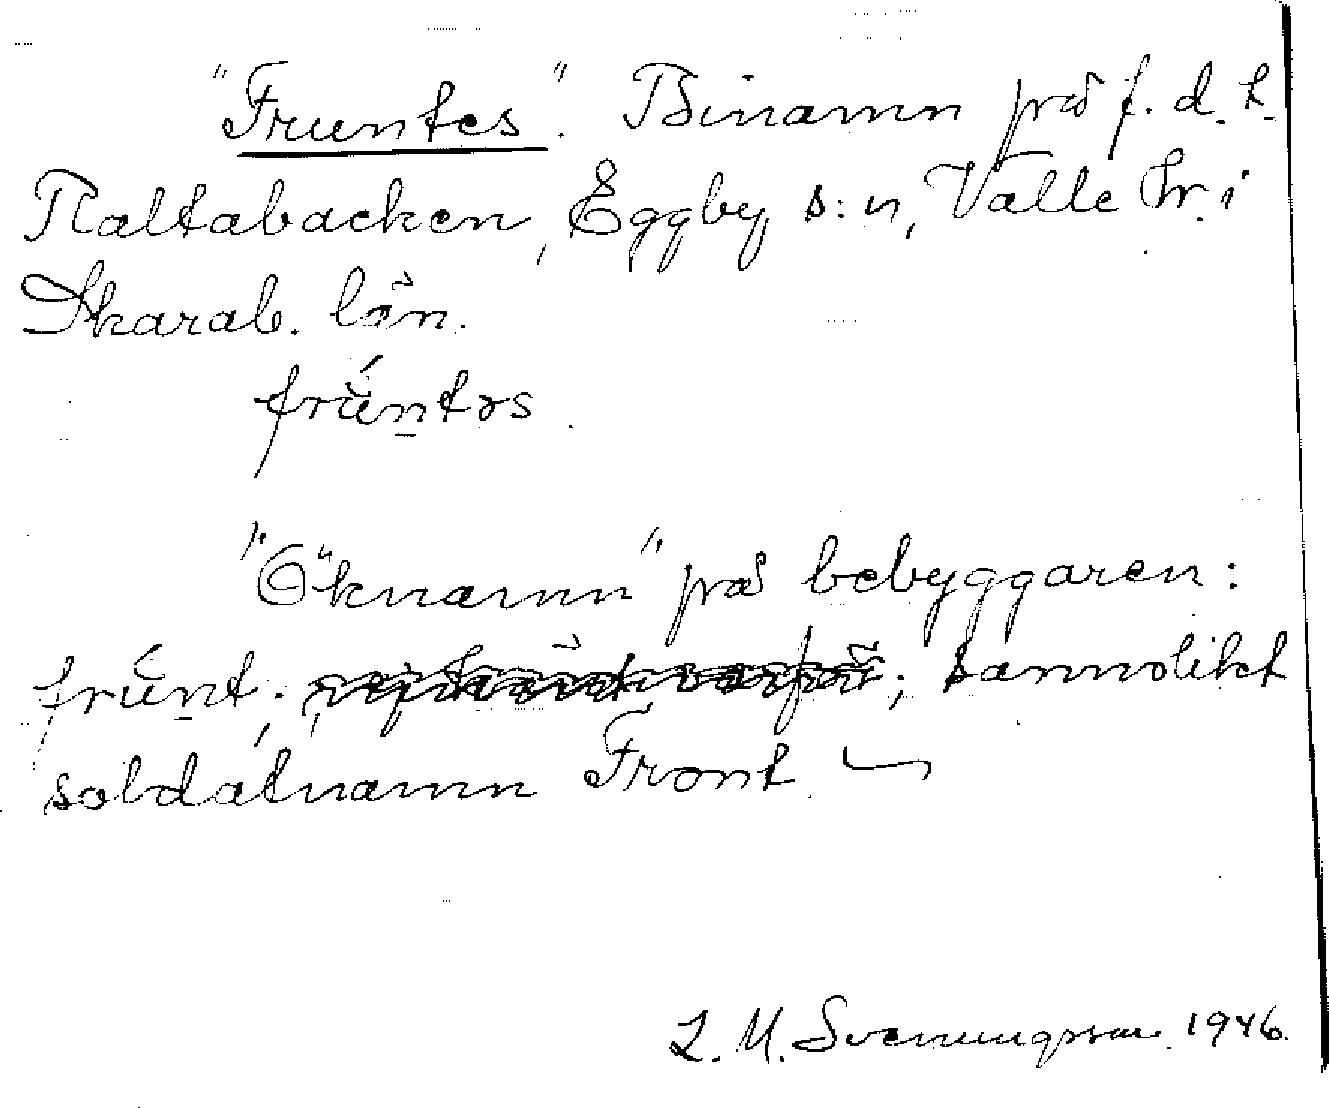 "Fruntes". Binamn på f. d. t.
Raltabacken, Eggby s:n, Valle hr. i
Skarab. län.
frúntəs.
"Öknamn" på bebyggaren:
frúnt, ; sannolikt
soldatnamn Front
L. M. Svenungsson 1946.